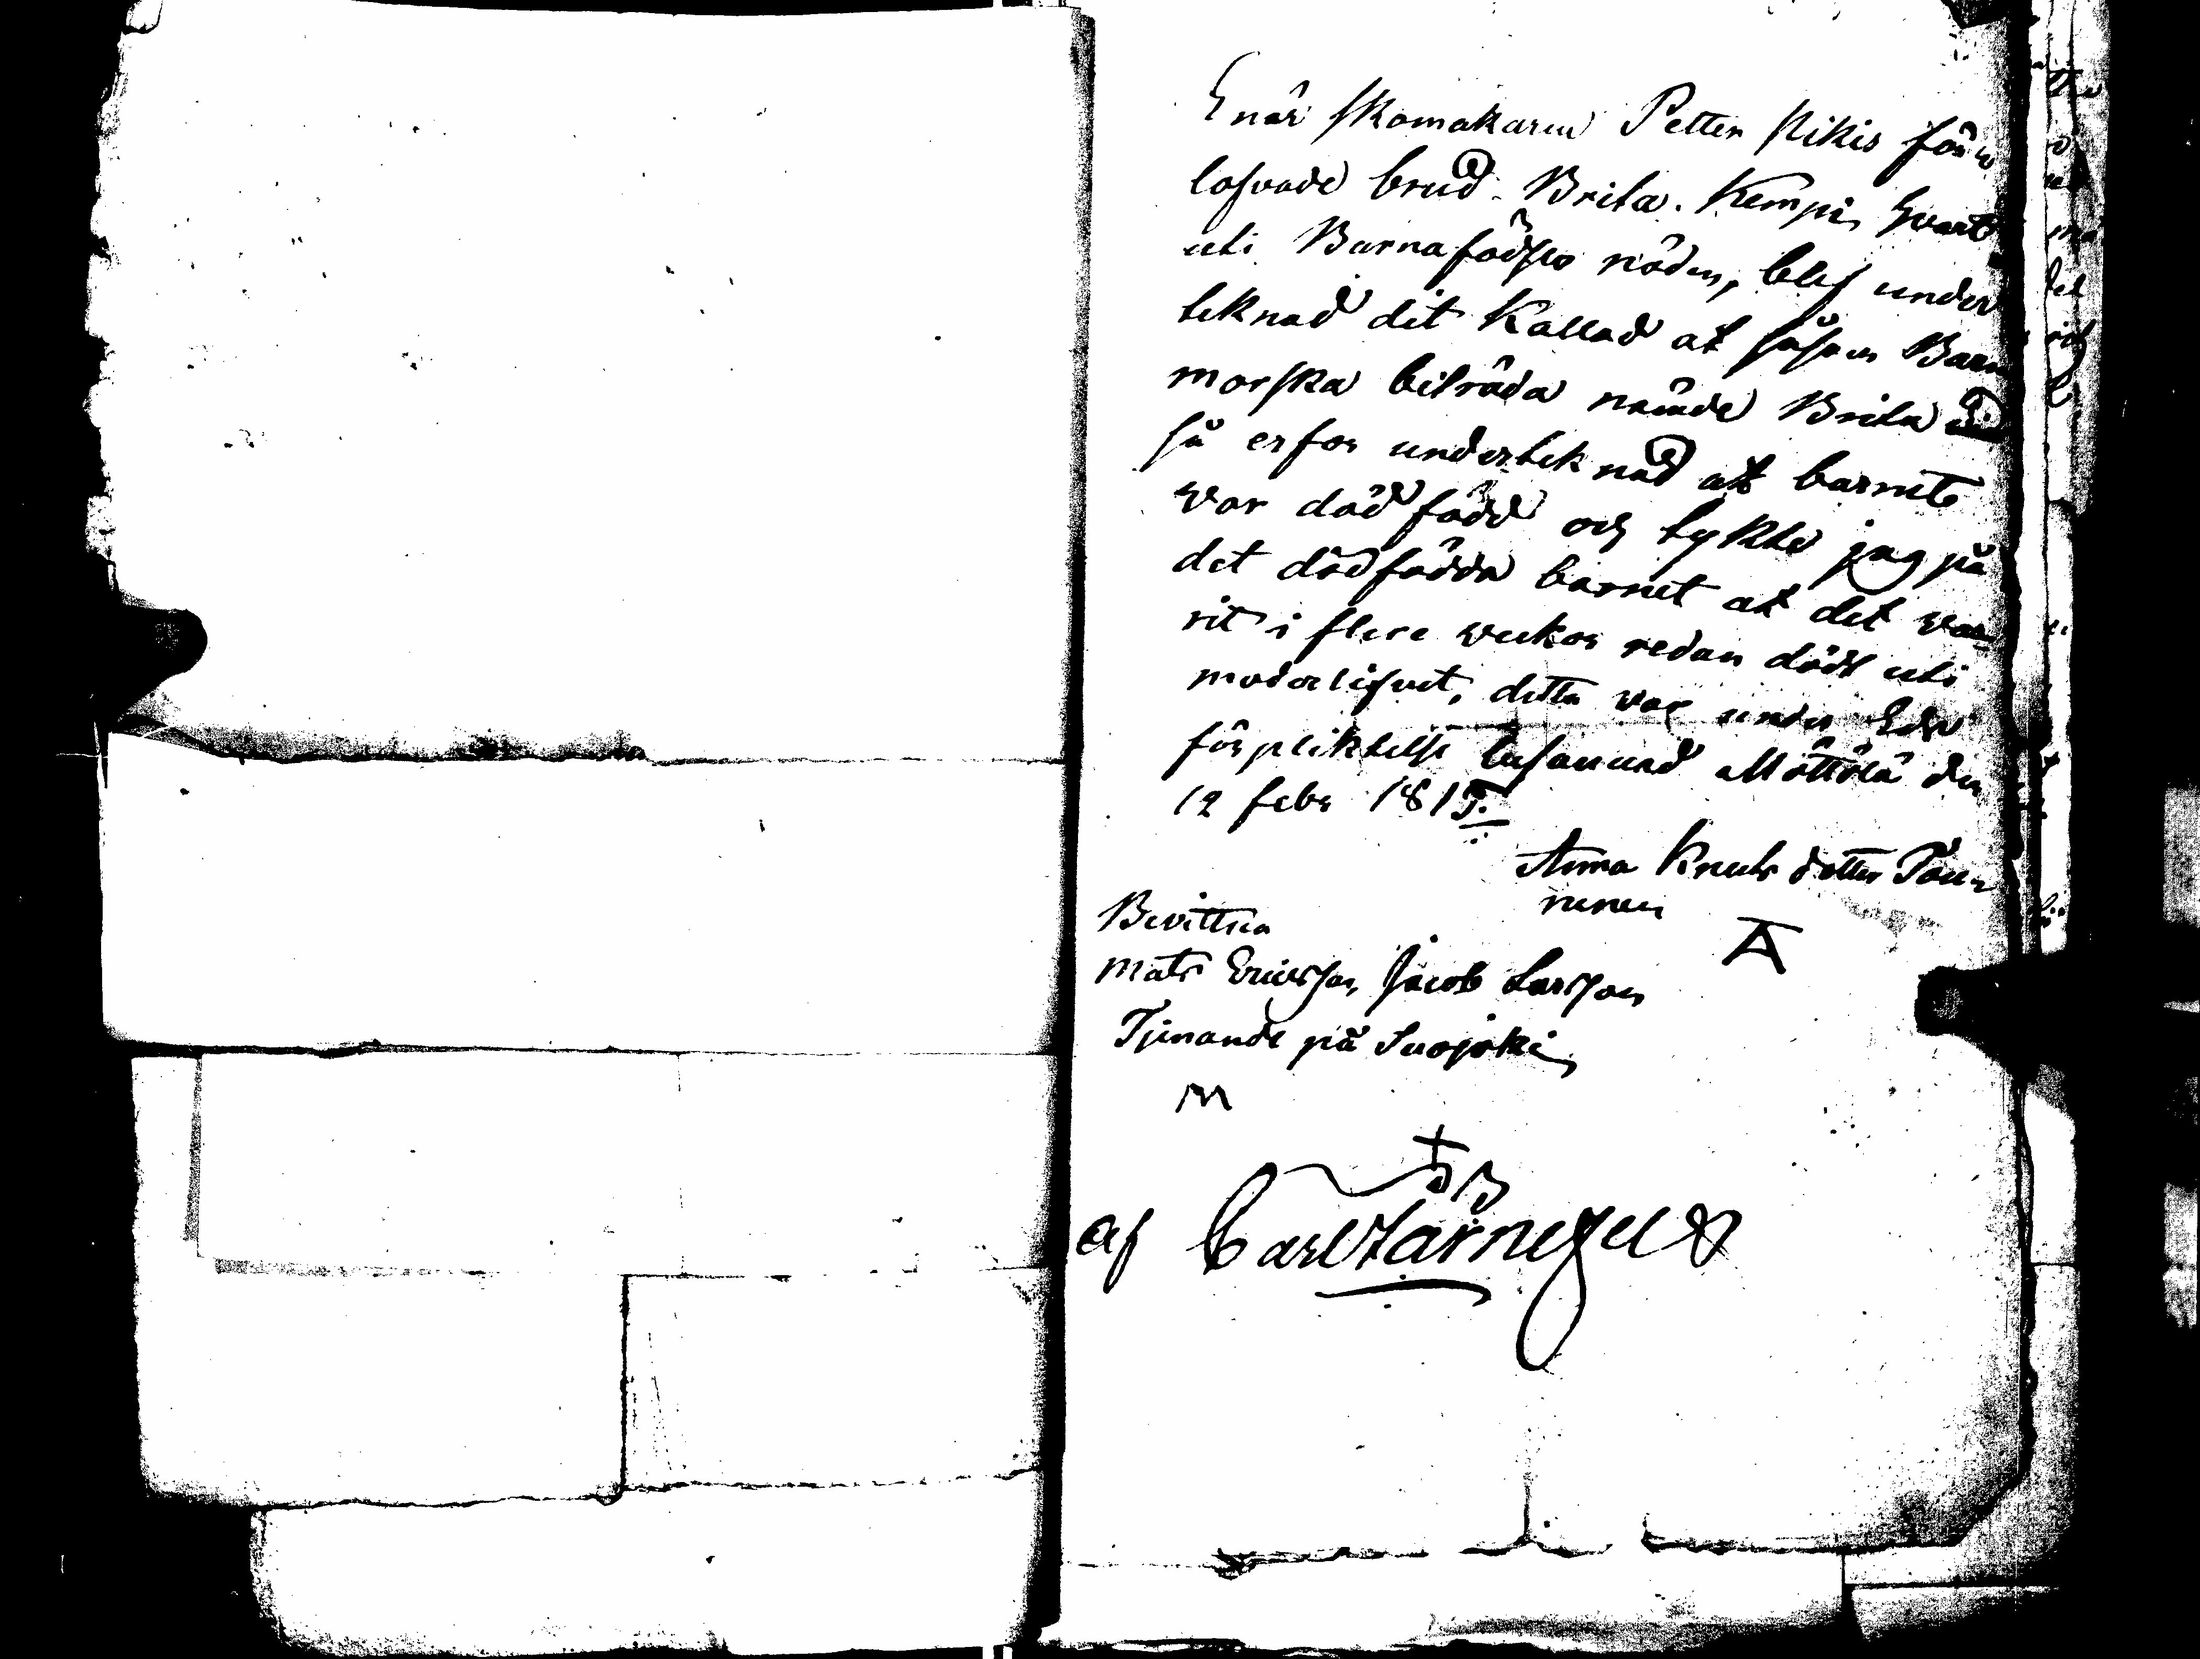 Enär skomakaren Petter stikis för
lofvade brud. Brita. Kempi, hvart
uti Barnafödsles nöden, blef under
teknad dit Kallad at såsom Barn
morska biträda nämde Brita
så erfor underteknad att barnete
var död född och tykte jag på
det död födda barnet at det va
rit i flere veckor redan dödt uti
moderlifvet, detta var under Eds
förpliktelse Möttölä den
12 febr 181
Anna Knuts dotter
nenen
Bevittna
Mats Ericsson, Jacob Larsson
Tjenande på Suojoki
A
M
af Carl Stårnefelt